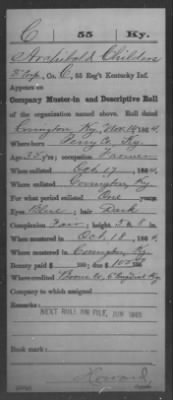 C 55 Ky.
Archibald Childers
Corp, Co. C, 55 Reg't Kentucky Inf.
Appears on
Company Muster-in and Descriptive Roll
of the organization named above. Roll dated
Covington Ky, Nov. 186
Where born Perry Co, Ky.
Age y'rs; occupation Farmer
When enlisted Oct 17, 1864
Where enlisted Covington Ky
For what period enlisted One years.
Eyes Blue; hair Dark
Complexion Fair; height ft. 8 in.
When mustered in Oct 18, 1864
Where mustered in Covington Ky.
Bounty paid $ 100; due $ 100
Where credited Boone Co, 6 Ky
Company to which assigned
Remarks:
NEXT ROLL ON FILE, JUN 1865
Book mark:
Howard